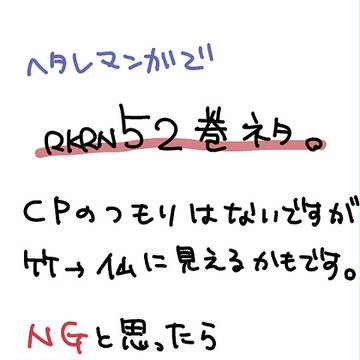 ヘタレマンガで
RKRN52巻ネタ。
CPのつもりはないですが
竹→仙に見えるかもです。
NGと思ったら